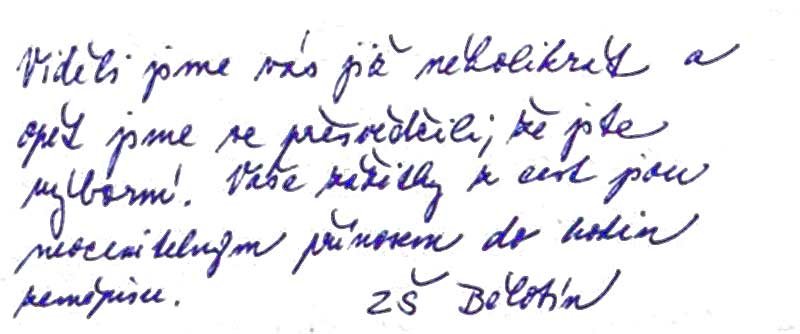 Viděli jsme vás již několikrát a
opět jsme se přesvědčili, že jste
výborní. Vaše zážitky z cest jsou
neocenitelným přínosem do hodin
zeměpisu. ZŠ Bělotín